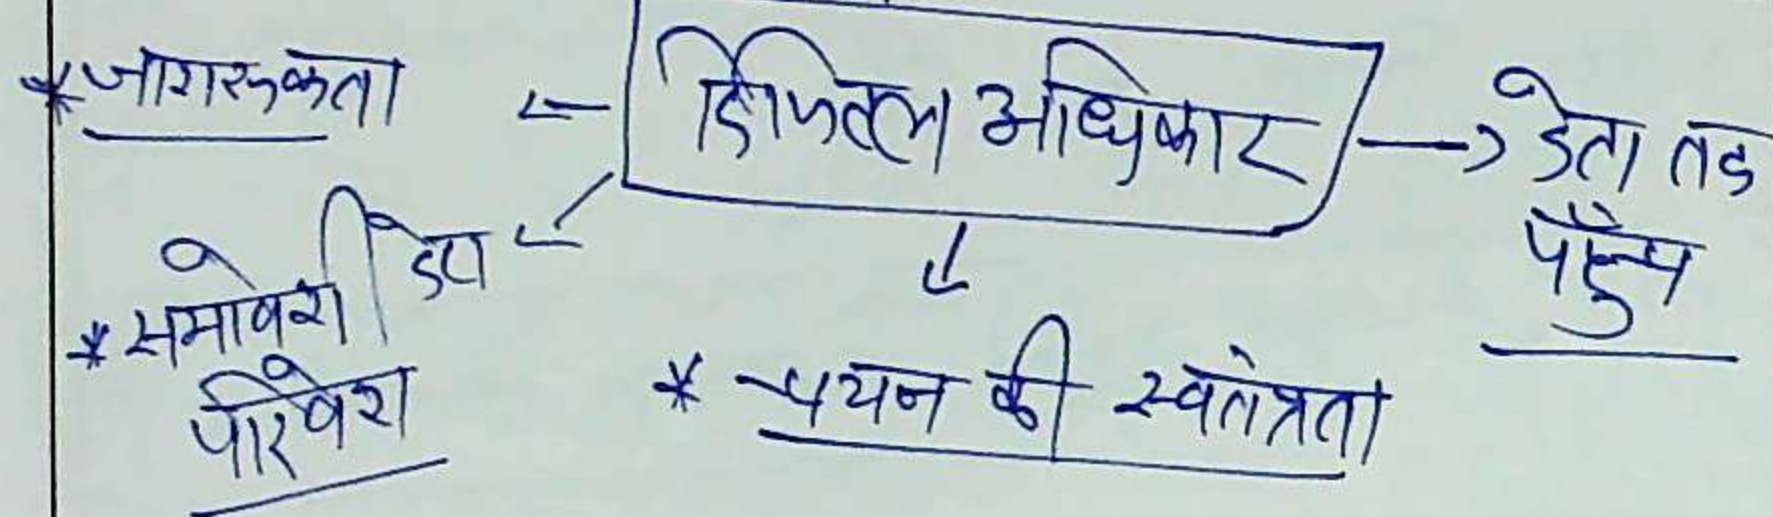 * जागरूकता ← डिजिटल अधिकार → डेटा तक
पहुँच
* समावेशी डेटा
परिवेश
* चयन की स्वतंत्रता